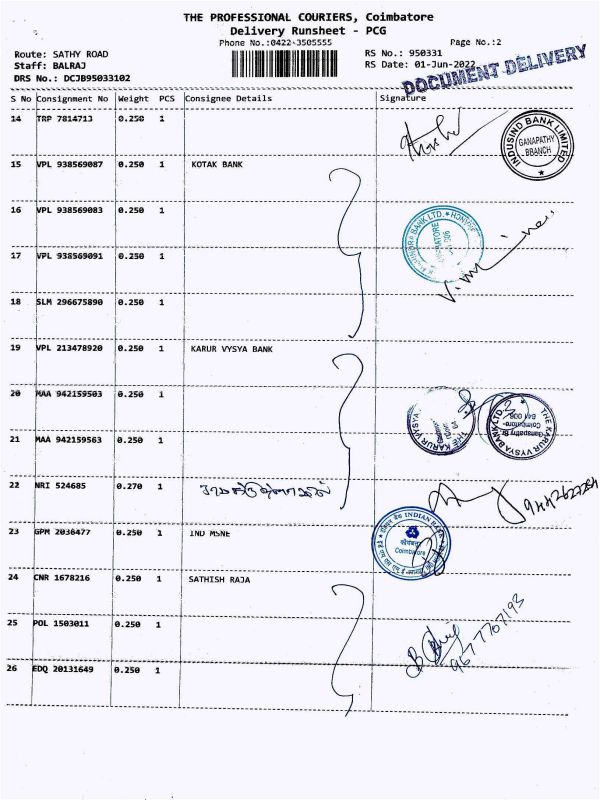 THE PROFESSIONAL COURIERS, Coimbatore
Delivery Runsheet - PCG
Phone No.:0422-3505555
Page No.:2
Route: SATHY ROAD
RS No.: 950331
Staff: BALRAJ
RS Date: 01-Jun-2022
DRS No.: DCJB95033102
DOCUMENT DELIVERY
S No Consignment No Weight PCS Consignee Details Signature
14 TRP 7814713 0.250 1
INDUSIND BANK LIMITED
GANAPATHY
BRANCH
15 VPL 938569087 0.250 1 KOTAK BANK
16 VPL 938569083 0.250 1
17 VPL 938569091 0.250 1
18 SLM 296675890 0.250 1
19 VPL 213478920 0.250 1 KARUR VYSYA BANK
20 MAA 942159503 0.250 1
THE KARUR VYSYA BANK LTD.
Ganapathy Br
Coimbatore-
641 006
21 MAA 942159563 0.250 1
22 NRI 524685 0.270 1
23 GPM 2036477 0.250 1 IND MSNE
INDIAN BANK
इंडियन बैंक
कोयंबत्तूर
Coimbatore
24 CNR 1678216 0.250 1 SATHISH RAJA
25 POL 1503011 0.250 1
9677767193
26 EDQ 20131649 0.250 1